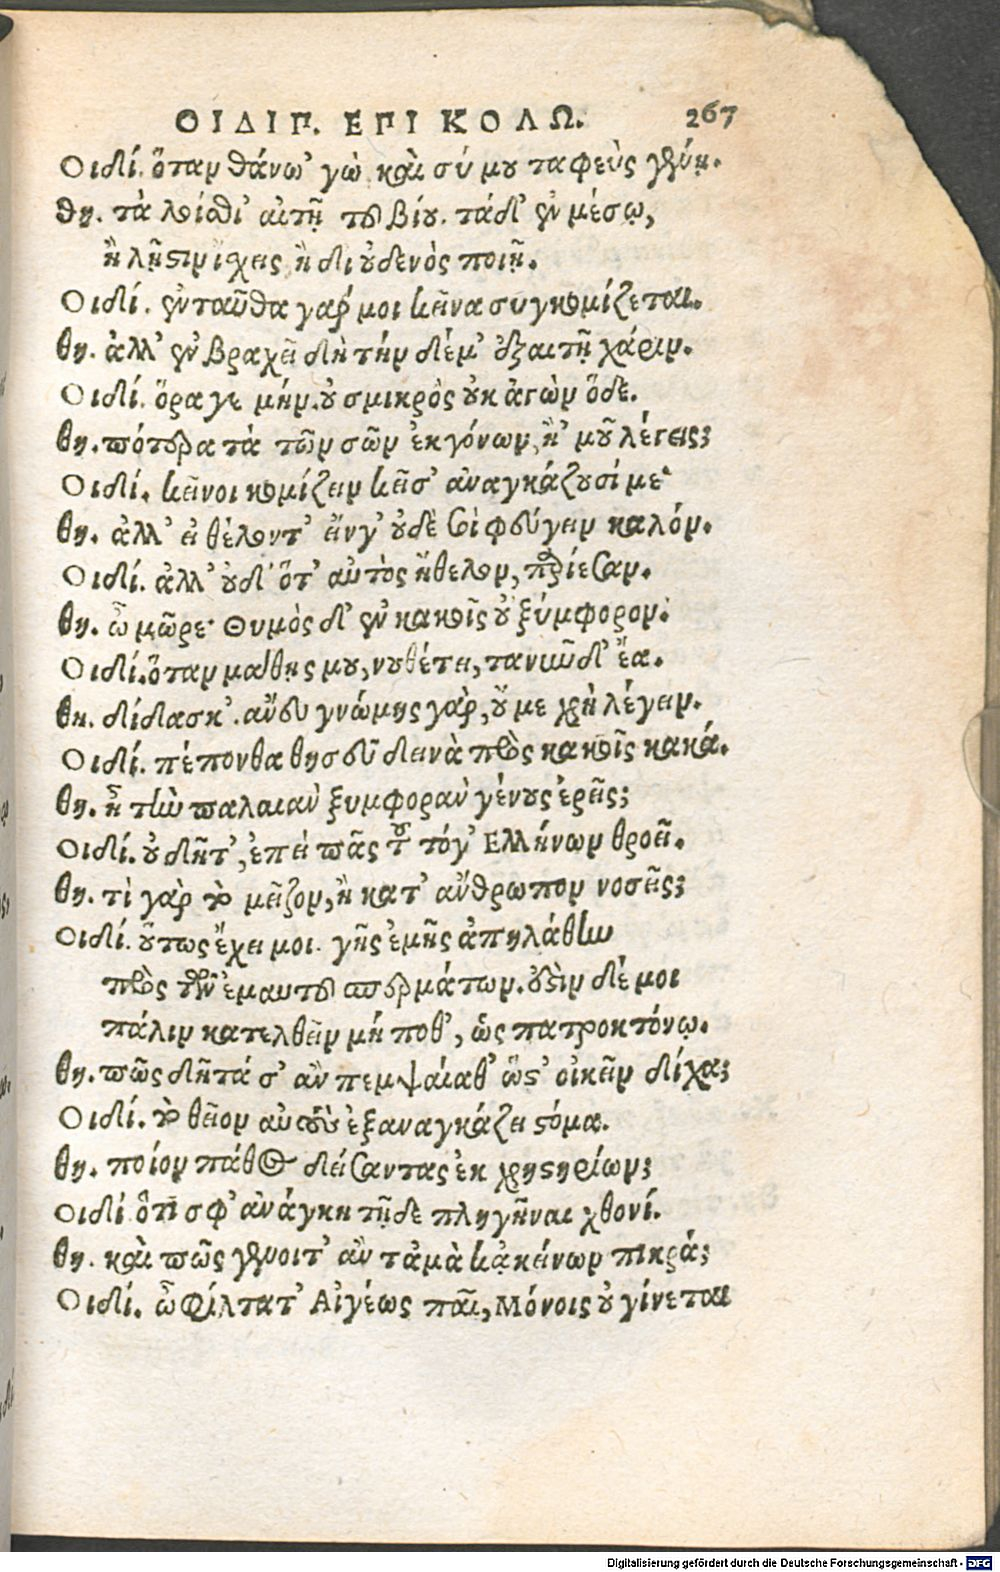 ΟΙΔΙΠ. ΕΠΙ ΚΟΛΩ. 267
Οιδί. ὅταν θάνω' γὼ καὶ σύ μου ταφεὺς γένῃ.
θη. τὰ λοίσθι' αἰτῇ τοῦ βίου. τάδ' ἐν μέσῳ,
ἢ λῇστιν ἴσχεις ἢ δι οὐδενὸς ποιῇ.
Οιδί. ἐνταῦθα γάρ μοι κεῖνα συγκομίζεται.
θη. ἀλλ' ἐν βραχεῖ δὴ τήν δέ μ' ἐξαιτῇ χάριν.
Οιδί. ὅρα γε μήν. οὐ σμικρὸς οὐκ ἀγὼν ὅδε.
θη. πότερα τὰ τῶν σῶν ἐκγόνων, ἢ' μοῦ λέγεις;
Οιδί. κεῖνοι κομίζειν κεῖσ' ἀναγκάζουσί με·
θη. ἀλλ' εἰ θέλοντ' ἄνγ' οὐδὲ σοὶ φεύγειν καλόν.
Οιδί. ἀλλ' οὐδ' ὅτ' αὐτὸς ἤθελον, παρίεσαν.
θη. ὦ μῶρε· θυμὸς δ' ἐν κακοῖς οὐ ξύμφορον.
Οιδί. ὅταν μάθῃς μου, νουθέτει, τανῦν δ' ἔα.
θη. δίδασκ'. ἄνευ γνώμης γὰρ, οὔ με χρὴ λέγειν.
Οιδί. πέπονθα θησεῦ δεινὰ πρὸς κακοῖς κακά.
θη. ἦ τὴν παλαιὰν ξυμφορὰν γένους ἐρεῖς;
Οιδί. οὐ δῆτ', ἐπεὶ πᾶς τοῦτο τόγ' Ελλήνων θροεῖ.
θη. τὶ γὰρ τὸ μεῖζον, ἢ κατ' ἄνθρωπον νοσεῖς;
Οιδί. οὕτως ἔχει μοι. γῆς ἐμῆς ἀπηλάθην
πρὸς τῶν ἐμαυτοῦ σπερμάτων. ἔστιν δέ μοι
πάλιν κατελθεῖν μή ποθ', ὡς πατροκτόνῳ.
θη. πῶς δῆτά σ' ἂν πεμψαίαθ' ὥστ' οἰκεῖν δίχα;
Οιδί. τὸ θεῖον αὐτοὺς ἐξαναγκάζει στόμα.
θη. ποίον πάθος δείσαντας ἐκ χρηστηρίων;
Οιδί ὅτι σφ' ἀνάγκη τῇδε πληγῆναι χθονί.
θη. καὶ πῶς γένοιτ' ἂν τἀμὰ κἀκείνων πικρά;
Οιδί. ὦ φίλτατ' Αἰγέως παῖ, Μόνοις οὐ γίνεται
Digitalisierung gefördert durch die Deutsche Forschungsgemeinschaft - DFG